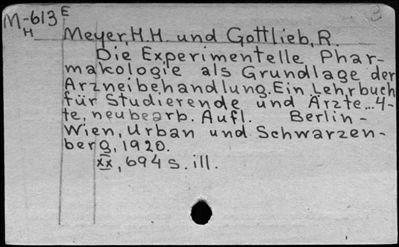 M-613 E
H
Meyer, H.H. und Gottlieb, R.
Die Experimentelle Phar-
makologie als Grundlage der
Arzneibehandlung. Ein Lehrbuch
für Studierende und Ärzte...4-
te, neubearb. Aufl. Berlin-
Wien, Urban und Schwarzen-
berg, 1920.
xx, 694 s. ill.